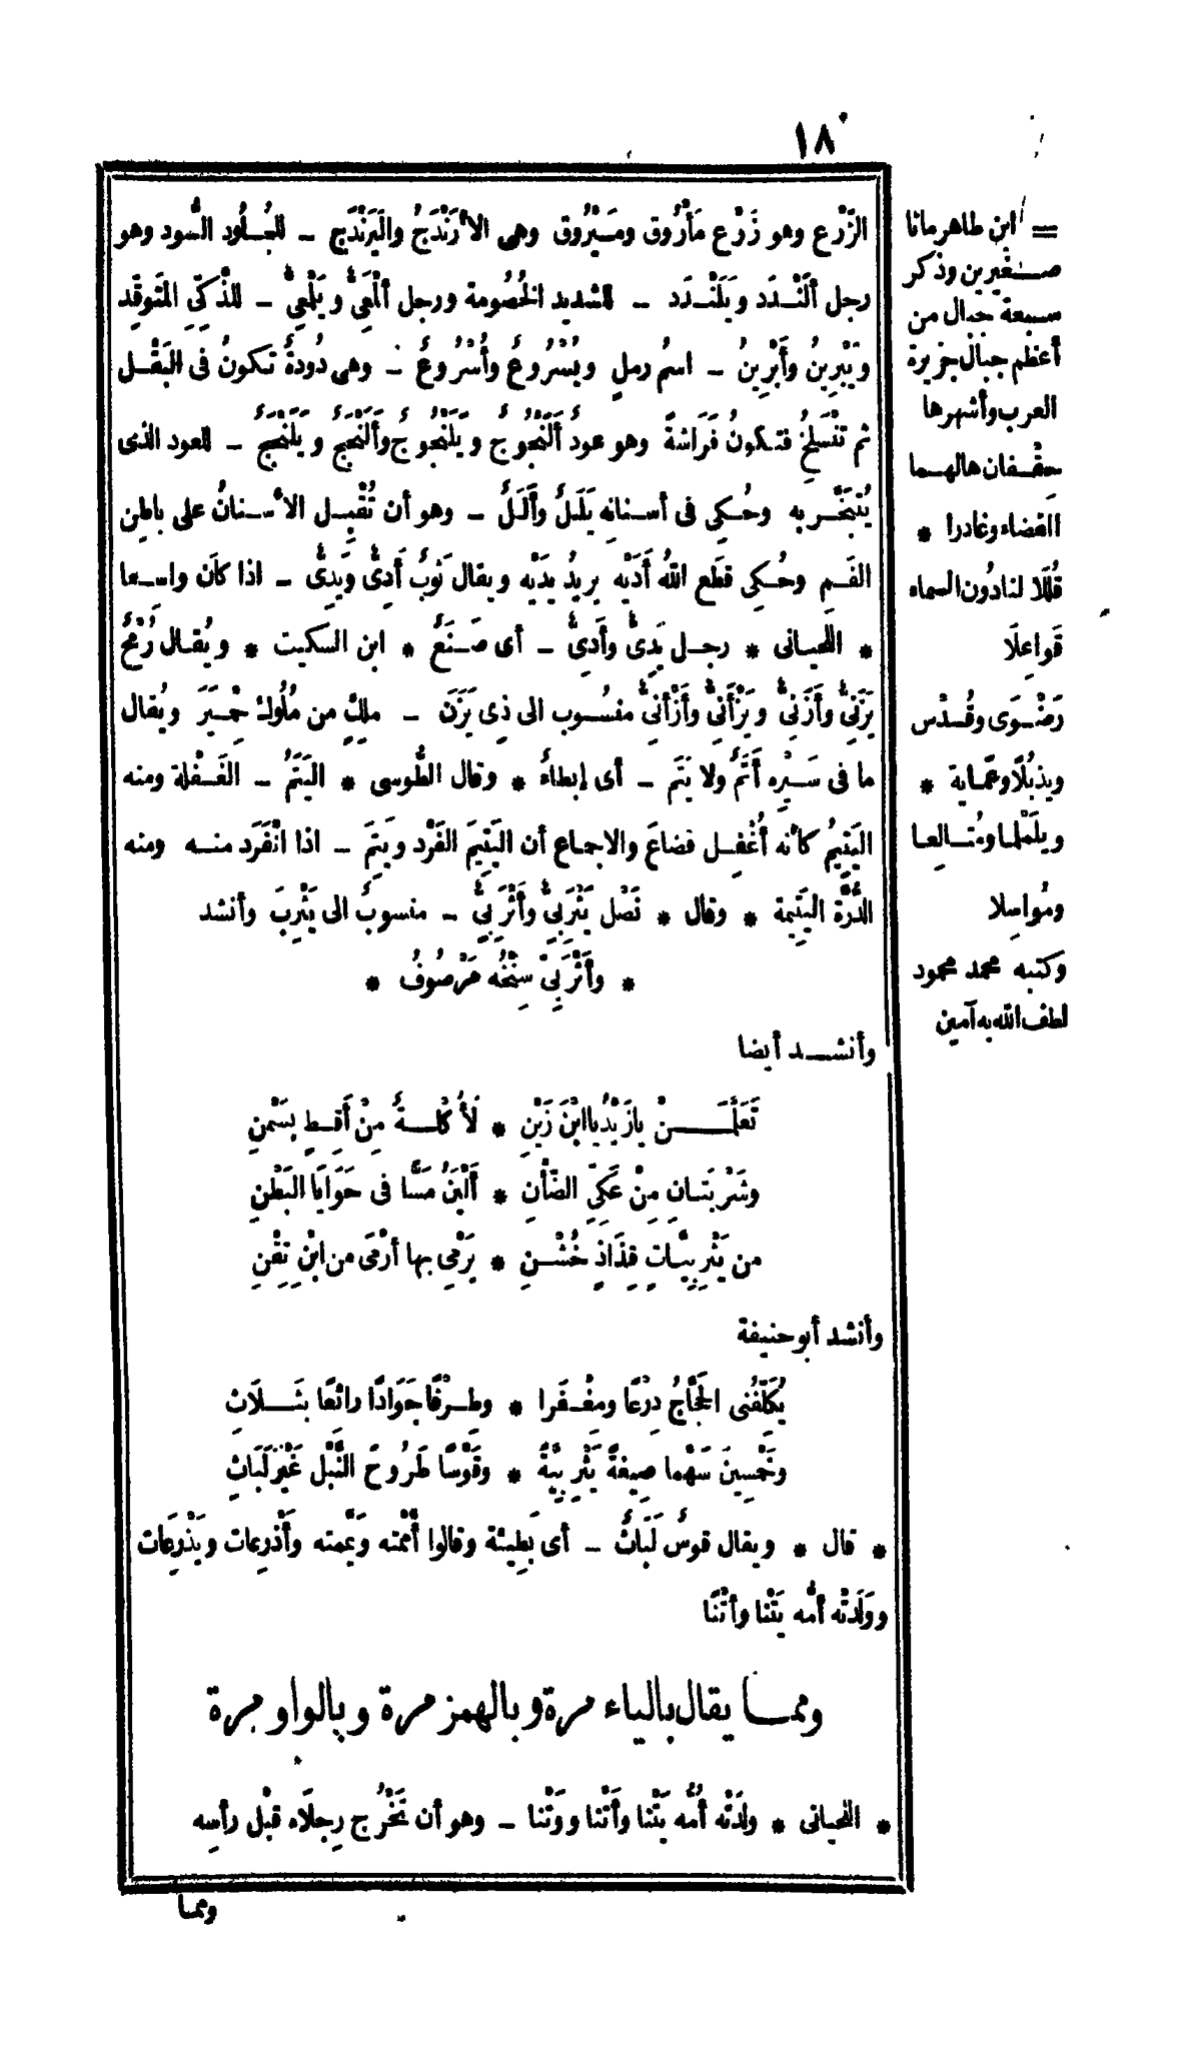 ١٨
الزَّرْع وهو زَرْع مَأْرُوق ومَيْرُوق وهى الأَرَنْدَجُ والْيَرَنْدَج – للجُـلُود السُّود وهو
رجل أَلَنْـدَد ويَلَنْـدَد – للشديد الخُصُومة ورجل أَلْمَعِىٌّ ويَلْمَعِىٌّ – للذَّكِىّ المُتَوَقِّد
ويَبْرِينُ وأَبْرِينُ – اسمُ رملٍ ويُسْرُوعٌ وأُسْرُوعٌ – وهى دُودةٌ تكونُ فى البَقْـل
ثم تنْسَلِخُ فتكونُ فَرَاشةً وهو عودُ أَلَنْجُوجٌ ويَلَنْجُوجٌ وأَلَنْجَجٌ ويَلَنْجَجٌ – للعود الذى
يُتَبَخَّـر به وحُـكِى فى أسـنانِه يَلَلٌ وأَلَلٌ – وهو أن تُقْبِـل الأسـنانُ على باطِنِ
الفَـمِ وحُـكِى قطَع اللهُ أَدَيْه يريدُ يدَيْه ويقال ثوبٌ أَدِىٌّ ويَدِىٌّ – اذا كان واسـعا
* اللحيانى * رجـل يَدِىٌّ وأَدِىٌّ – أى صَـنَعٌ * ابن السكيت * ويُقـال رُمْحٌ
يَزَنِىٌّ وأَزَنِىٌّ ويَزْأَنِىٌّ وأَزْأَنِىٌّ منسُـوب الى ذِى يَزَن – ملِكٍ من مُلُوك حِمْـيَر ويُقال
ما فى سَـيْرِه أَتَمٌ ولا يَتَم – أى إبطاءٌ * وقال الطُّوسى * اليَتَمُ – الغَـفْلة ومنه
اليَتِيمُ كأنه أُغْفِـل فضاعَ والاجماع أن اليَتِيمَ الفَرْد ويَتِمَ – اذا انْفَرَد منـه ومنه
الدُّرَّة اليَتِيمة * وقال * نَصْل يَثْرَبِىٌّ وأَثْرَبِىٌّ – منسوبٌ الى يَثْرِبَ وأنشد
* وأَثْرَبِىّ سِنْخُه مَرْصُوفُ *
وأنشـد أيضا
تَعَلَّـمَـنْ يازَيْدُ ياابْنَ زَيْنِ * لَأُكْلـةٌ مِنْ أَقِـطٍ بسَمْنِ
وشَرْبَتـانِ مِنْ عَكِىِّ الضَّأْنِ * أَلْيَنُ مَسًّا فى حَوَايَا البَطْنِ
من يَثْرِبِيَّاتٍ قِذَاذٍ خُشْـنِ * يَرْمِى بها أَرْمَى من ابْنِ تِقْنِ
وأنشد أبو حنيفة
يُكَلِّفُنى الحَجَّاجُ دِرْعًا ومِغْـفَرا * وطِـرْفًا جَوَادًا رائعًا بثَـلَاثِ
وخَمْسِينَ سَهْما صِيغةً يَثْرِبِيَّةً * وقَوْسًا طَرُوحَ النَّبْلِ غَيْرَ لَبَاثِ
* قال * ويقال قوسٌ لَبَاثٌ – أى بَطِيئة وقالوا أَمَّمْته ويَمَّمته وأَذْرِعات ويَذْرِعَات
ووَلَدَتْه أمُّه يَتْنا وأَتْنًا
وممـا يقال بالياء مرة وبالهمز مرة وبالواو مرة
* اللحيانى * ولَدَتْه أُمُّه يَتْنا وأَتْنا ووَتْنا – وهو أن تَخْرُج رِجلَاه قبْل رأسِه
وممـا
= ابن طاهر ماتا
صـغيرين وذكر
سـبعة جبال من
أعظم جبال جزيرة
العرب وأشهرها
حقـفان هالهـما
القضاء وغادرا *
قُلَلا لنا دُون السماء
قَواعِلَا
رَضْـوَى وقُـدْس
ويذبُلًا وعَمـاية *
ويلَمْلما ومُتـالِعـا
ومُواسِلا
وكتبه محمد محمود
لطف الله به آمين